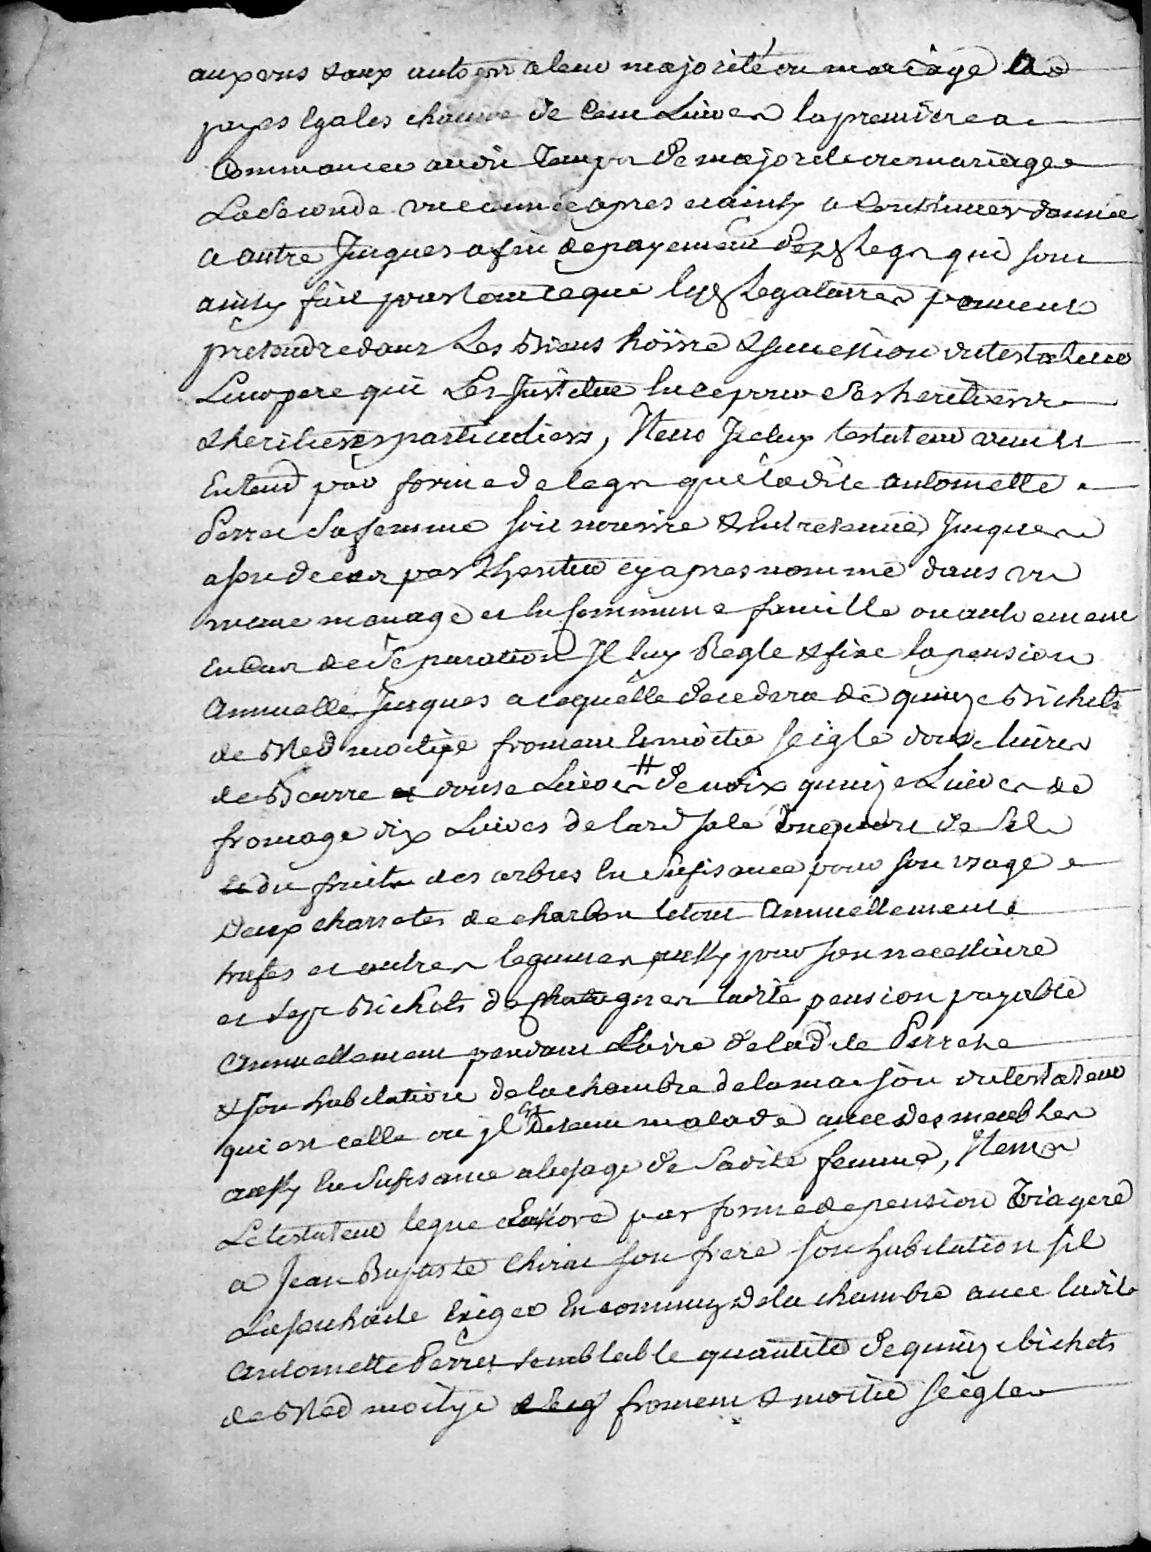 aux uns & aux autres a leur majorité ou mariage a
payes Egales chacune de Cent Livres la premiere a
Commancer audit temps de majorité ou mariage
La Seconde une année apres et ainsy a Continuer d'année
a autre Jusques a fin de payement desd Legs qui sont
ainsy fait pour tout ce que lesd Legataires peuvent
pretendre dans Les Biens hoirie & succession du testateur
Leur pere qui Les Institue en ce pour Ses heritiers
& heritieres particuliers, Item Jceluy testateur veut et
Entend par forme de legs que ladite antoinette
Perret Sa femme soit nourrie & Entretenue Jusques
a son deces par L'heritier cy apres nommé dans un
meme menage et en commune famille ou autrement
En Cas de Separation Jl luy Regle & fixe la pension
Annuelle Jusques a ce quelle decedera de quinze Bichets
de Bled moitye froment & moitié Seigle douze livres
de Beurre douse Livres de noix quinze Livres de
fromage dix Livres de lard sale de Sel
du fruit des arbres en Sufisance pour son usage
Deux charretes de charbon le tout Annuellement
trufes et autres legumes aussy pour son necessaire
et Sept Bichets de Chatagnes ladite pension payable
Annuellement pendant La vie de ladite Perret
& son habitation de la chambre de la maison du testateur
qui est celle ou jl est detenu malade avec des meubles
aussy en Sufisance a l'usage de Sadite femme, Item
Le testateur legue Encore par forme de pension Viagere
a Jean Baptiste Chirat son frere son habitation sil
La souhaite Exiger En commun de la chambre avec ladite
Antoinette Perret semblable quantité de quinze bichets
de Bled moitye froment & moitié Seigle